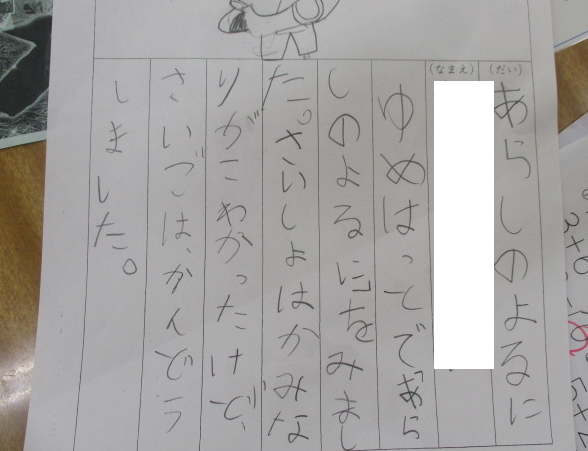 (だい)
あらしのよるに
(なまえ)
ゆめはっとで「あら
しのよるに」をみまし
た。さいしょはかみな
りがこわかったけど、
さいごは、かんどう
しました。